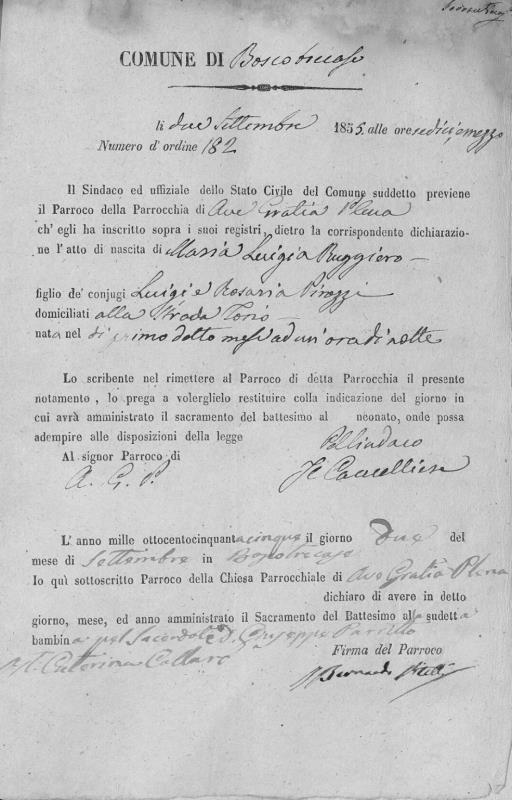 COMUNE DI Boscotrecase
li due Settembre 1855. alle ore sedici e mezzo
Numero d'ordine 182
Il Sindaco ed uffiziale dello Stato Civile del Comune suddetto previene
il Parroco della Parrocchia di Ave Gratia Plena
ch'egli ha inscritto sopra i suoi registri, dietro la corrispondente dichiarazio-
ne l'atto di nascita di Maria Luigia Ruggiero
figlio de' conjugi Luigi e Rosaria Pirozzi
domiciliati alla Strada Torio
nata nel dì primo detto mese ad un'ora di notte
Lo scribente nel rimettere al Parroco di detta Parrocchia il presente
notamento, lo prega a volerglielo restituire colla indicazione del giorno in
cui avrà amministrato il sacramento del battesimo al neonato, onde possa
adempire alle disposizioni della legge
Pel Sindaco
Al signor Parroco di
A. G. P.
Il Cancelliere
L'anno mille ottocentocinquantacinque il giorno due del
mese di Settembre in Boscotrecase
Io quì sottoscritto Parroco della Chiesa Parrocchiale di Ave Gratia Plena
dichiaro di avere in detto
giorno, mese, ed anno amministrato il Sacramento del Battesimo alla sudetta
bambina pel Sacerdote D. Giuseppe Parrillo
Caterina Collaro
Firma del Parroco
Bernardo